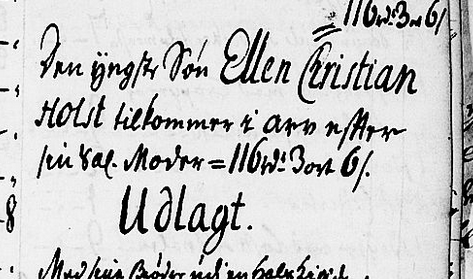 116rd: 3ort 6ß
Den ÿngste Søn Ellen Christian
Holst tilkommer i arv efter
sin Sal. Moder = 116rd: 3ort 6ß.
Udlagt.
Med sin Broder udi en halv